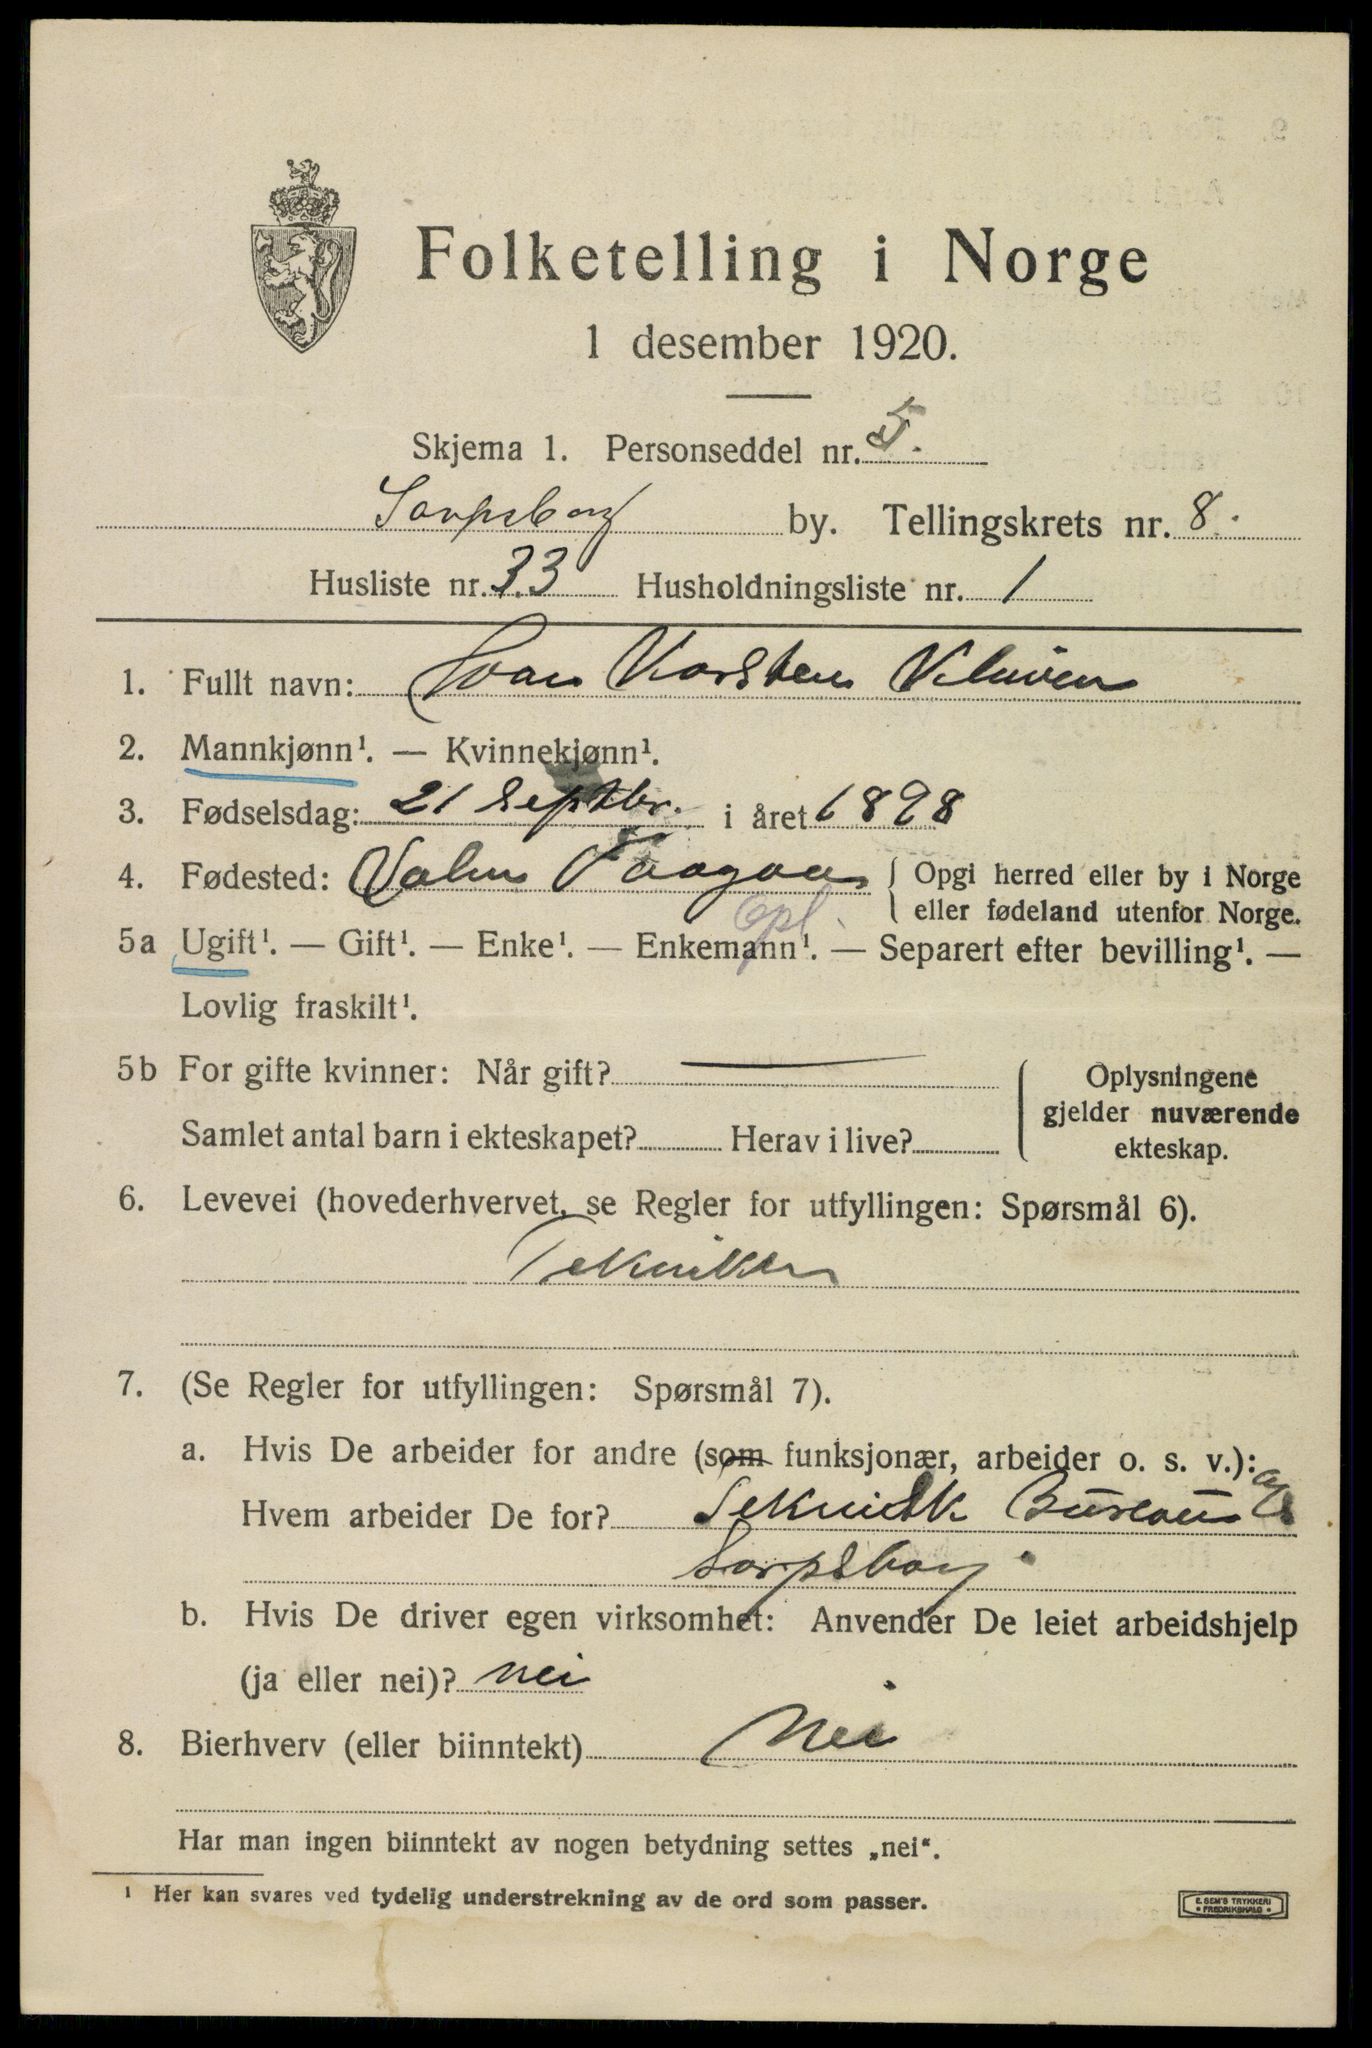 Folketelling i Norge
1 desember 1920.
Skjema 1. Personseddel nr. 5.
Sarpsborg by. Tellingskrets nr. 8.
Husliste nr. 33 Husholdningsliste nr. 1
1. Fullt navn: Ivar Karsten
2. Mannkjønn¹. — Kvinnekjønn¹.
3. Fødselsdag: 21 Septbr. i året 1898
4. Fødested: Vaagaa { Opgi herred eller by i Norge
eller fødeland utenfor Norge.
Opl.
5a Ugift¹. — Gift¹. — Enke¹. — Enkemann¹. — Separert efter bevilling¹. —
Lovlig fraskilt¹.
5b For gifte kvinner: Når gift? — Oplysningene
gjelder nuværende
Samlet antal barn i ekteskapet? Herav i live? ekteskap.
6. Levevei (hovederhvervet, se Regler for utfyllingen: Spørsmål 6).
Tekniker
7. (Se Regler for utfyllingen: Spørsmål 7).
a. Hvis De arbeider for andre (som funksjonær, arbeider o. s. v.):
Hvem arbeider De for? Teknisk Bureau A/S
Sarpsborg
b. Hvis De driver egen virksomhet: Anvender De leiet arbeidshjelp
(ja eller nei)? nei
8. Bierhverv (eller biinntekt) Nei
Har man ingen biinntekt av nogen betydning settes „nei“.
¹ Her kan svares ved tydelig understrekning av de ord som passer.
E. SEM'S TRYKKERI
• FREDRIKSHALD •